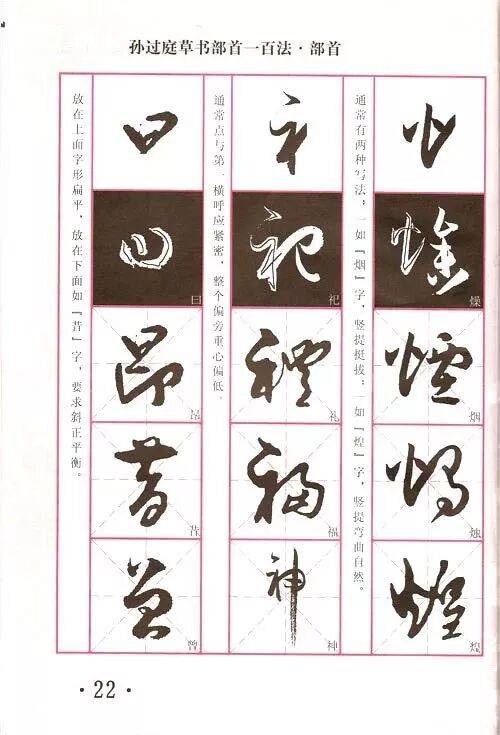 孙过庭草书部首一百法·部首
火
燥
燥
煙
烟
燭
烛
煌
煌
通常有两种写法，一如『烟』字，竖提挺拔；一如『煌』字，竖提弯曲自然。
礻
祀
祀
禮
礼
福
福
神
神
通常点与第一横呼应紧密，整个偏旁重心偏低。
日
曰
曰
昂
昂
昔
昔
曾
曾
放在上面字形扁平，放在下面如『昔』字，要求斜正平衡。
·22·